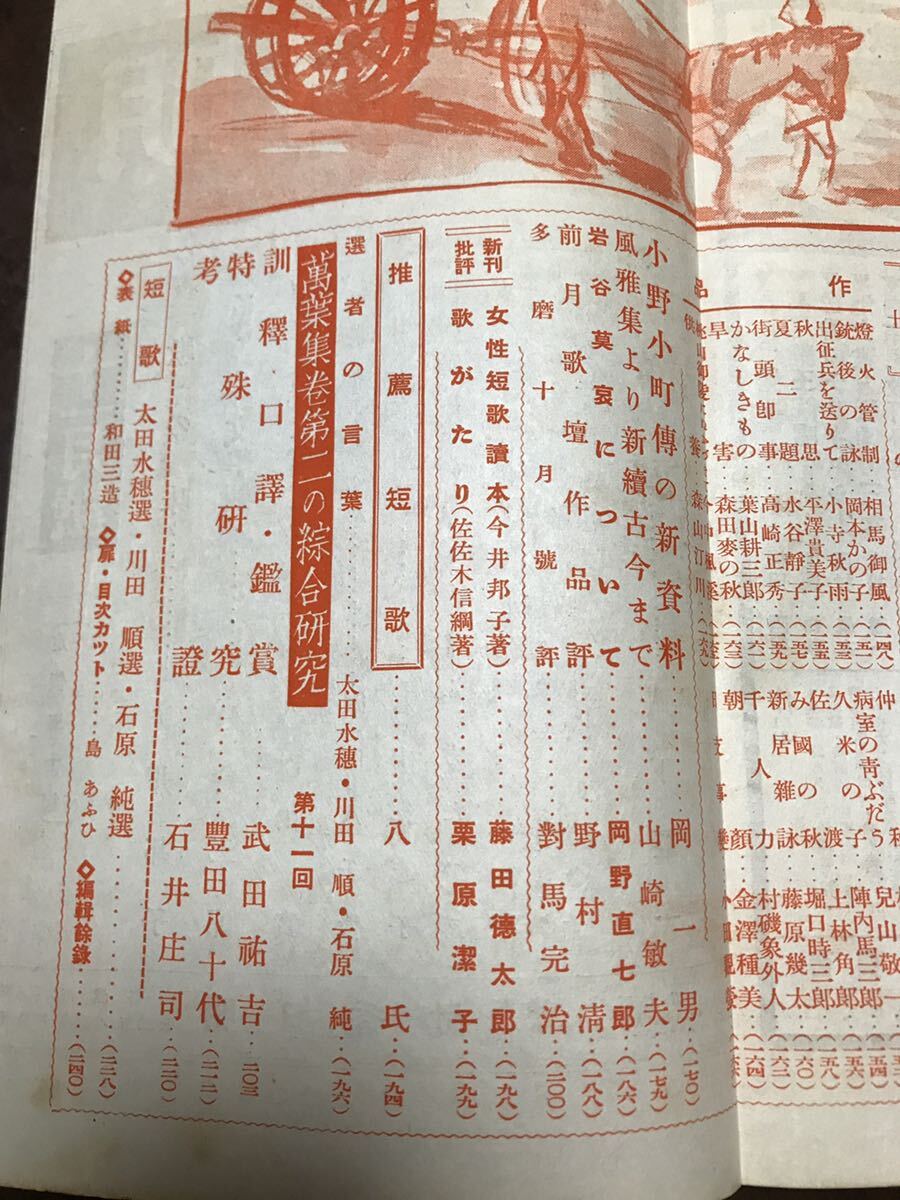 作品
燈火管制 相馬御風(一四八)
銃後の詠 岡本かの子(一五一)
出征兵を送りて 小寺秋雨
秋思 平澤貴美子(一五五)
夏二題 水谷靜子(一五七)
街頭即事 高崎正秀(一五九)
かなしきもの 葉山耕三郎(一六一)
旱害 森田麥の秋(一六三)
供養 森山汀川(一六五)
病室の青ぶだう 兒山敬一
久米の子 陣内馬三郎(一五四)
佐渡 土林角郎(一五六)
み國の秋 堀口時三郎(一五八)
新居雜詠 藤原幾太(一六〇)
千人力 村磯象外人(一六二)
朝顏 金澤種美(一六四)
小野小町傳の新資料 岡一男(一七〇)
風雅集より新續古今まで 山崎敏夫(一七九)
岩谷莫哀について 岡野直七郎(一八六)
前月歌壇作品評 野村清(一八八)
多磨十月號評 對馬完治(二〇〇)
新刊批評
女性短歌讀本(今井邦子著) 藤田德太郎(一九八)
歌がたり(佐佐木信綱著) 栗原潔子(一九九)
推薦短歌 八氏(一九四)
選者の言葉 太田水穗・川田順・石原純(一九六)
萬葉集卷第二の綜合研究 第十一回
訓釋口譯・鑑賞 武田祐吉 二〇三
特殊研究 豐田八十代(二一二)
考證 石井庄司(二二〇)
短歌 太田水穗選・川田順選・石原純選(二二八)
◇表紙 和田三造 ◇扉・目次カット 島あふひ ◇編輯餘錄(二四〇)